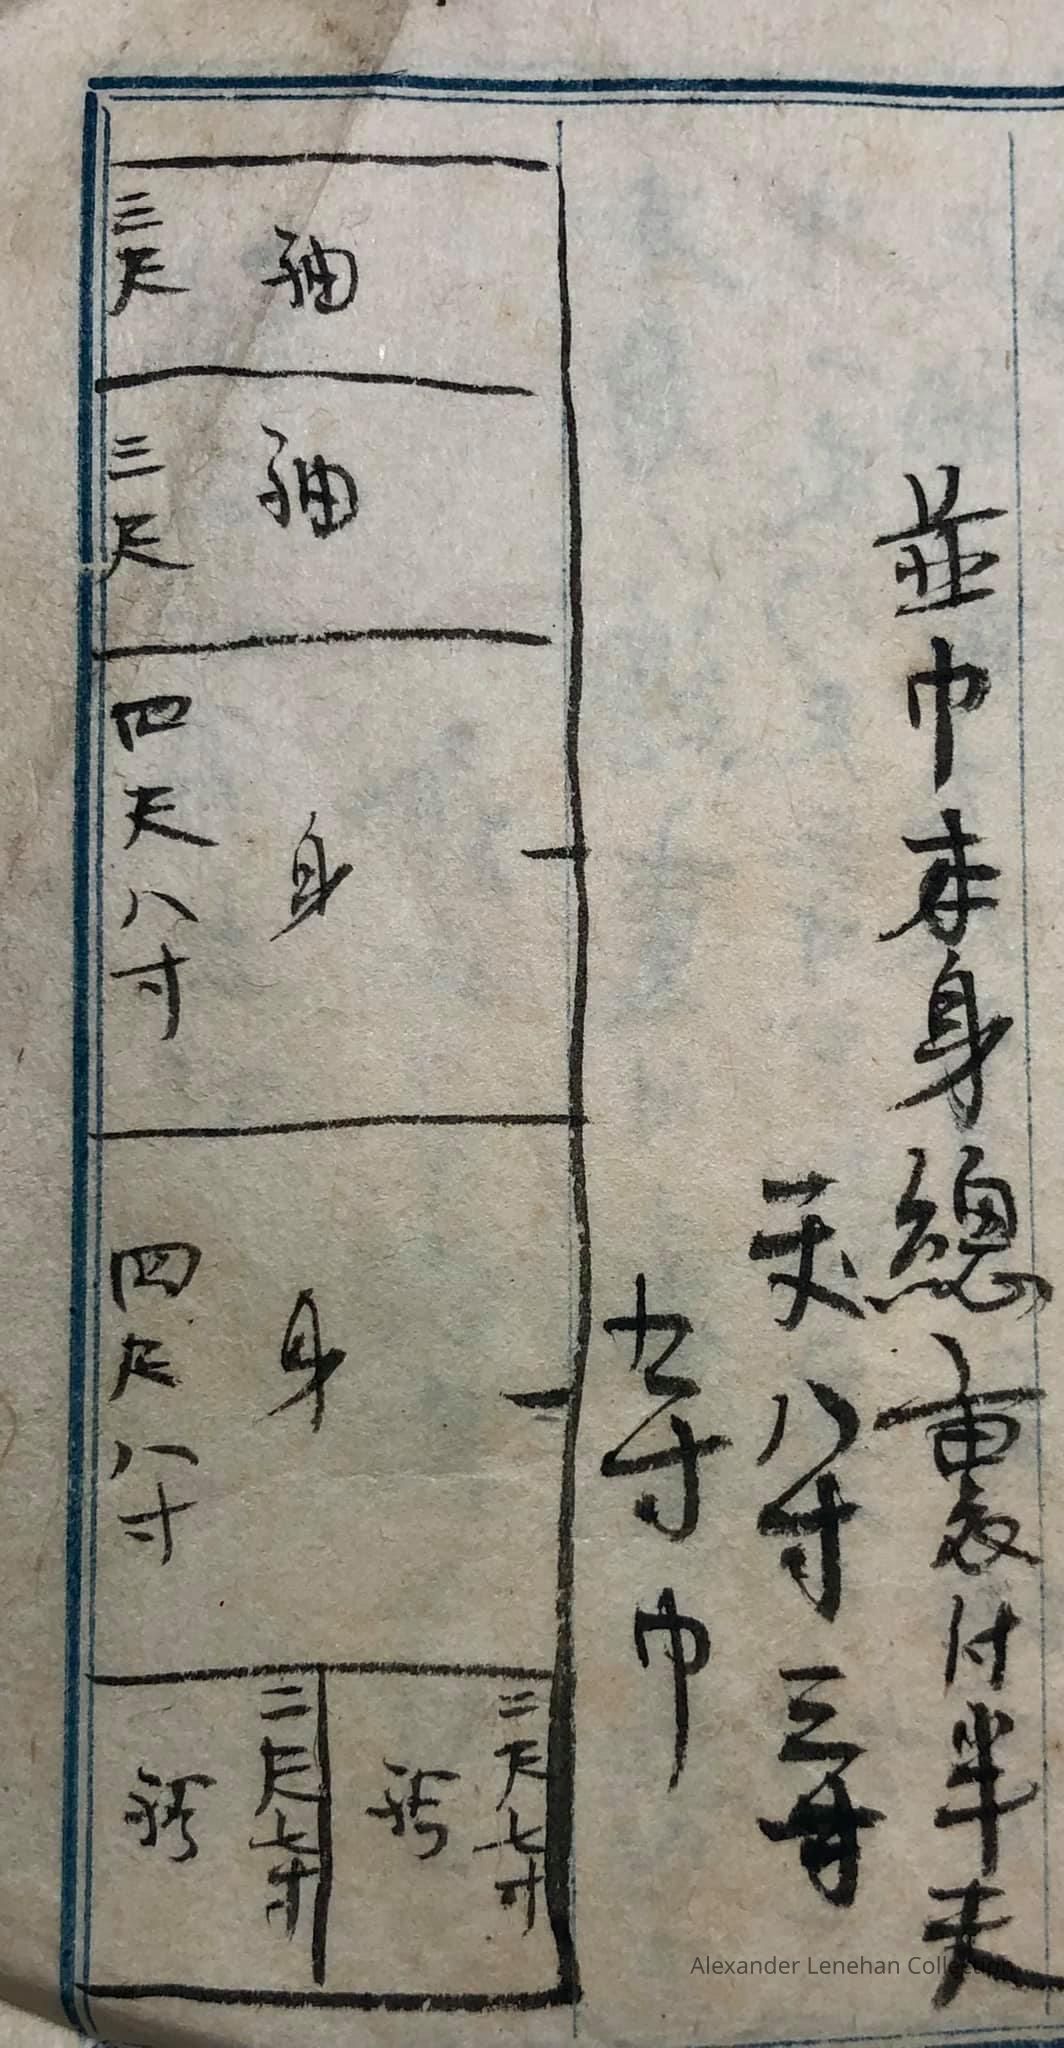 並巾本身總裏付半夫
天八寸三分
九寸巾
袖
三尺
袖
三尺
身
四尺八寸
身
四尺八寸
二尺七寸
袵
二尺七寸
袵
Alexander Lenehan Collection